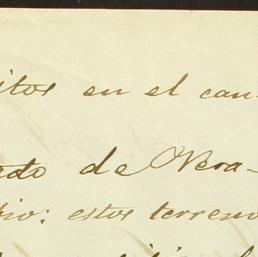 itos en el can-
ado de Vera-
bio: estos terreno